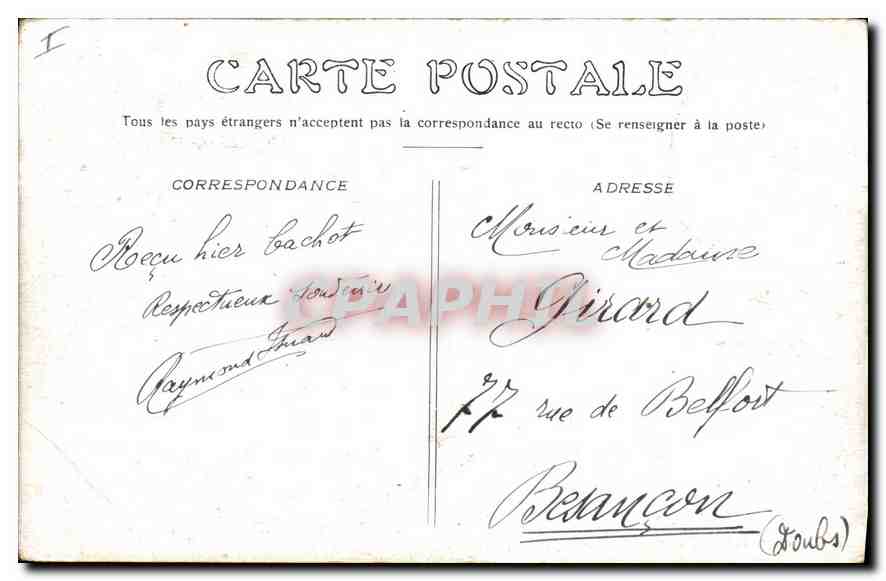 I
CARTE POSTALE
Tous les pays étrangers n'acceptent pas la correspondance au recto (Se renseigner à la poste)
CORRESPONDANCE
Reçu hier bachot
Respectueux souvenir
Raymond
ADRESSE
Monsieur et
Madame
Girard
77 rue de Belfort
Besançon
(Doubs)
CPAPHIL